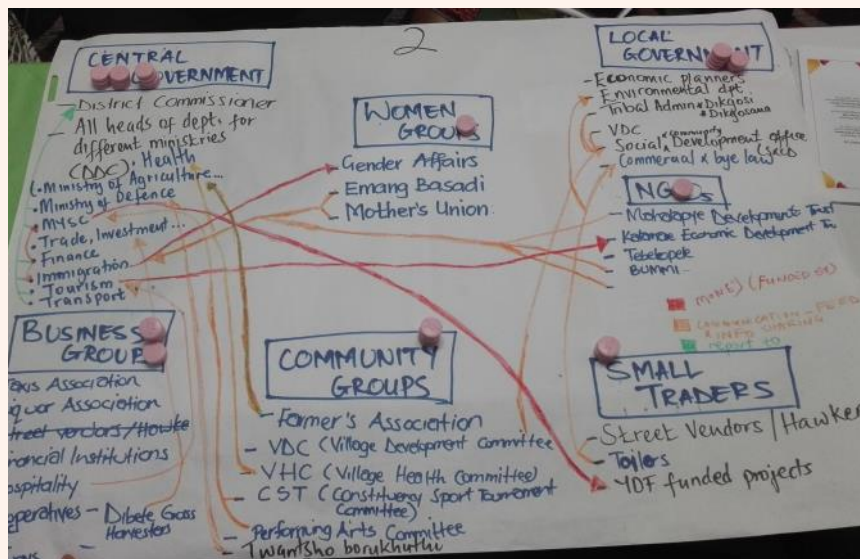 2
CENTRAL
GOVERNMENT
- District Commissioner
- All heads of dept. for
different ministries
(DDC) • Health
• Ministry of Agriculture...
• Ministry of Defence
• MYSC
• Trade, Investment...
• Finance
• Immigration...
• Tourism
• Transport
WOMEN
GROUPS
- Gender Affairs
- Emang Basadi
- Mother's Union
LOCAL
GOVERNMENT
- Economic planners
Environmental dpt.
- Tribal Admin * Dikgosi
* Dikgosana
- VDC
- Social & community Development office
(S&CD
- Commercial & bye law
NGOs
- Development Trust
- Economic Development
- Tebelopele
- BUMMI...
MONEY (FUNDED BY)
COMMUNICATION - FEED
& INFO SHARING
report to
BUSINESS
GROUP
Association
Association
Street vendors / Hawke
Institutions
- Dibete Grass
Harvesters
COMMUNITY
GROUPS
- Farmer's Association
- VDC (Village Development Committee
- VHC (Village Health Committee)
- CST (Constituency Sport Tournament
Committee)
- Performing Arts Committee
- Twantsho borukhuthi
SMALL
TRADERS
- Street Vendors / Hawke
- Toilers
- YDF funded projects